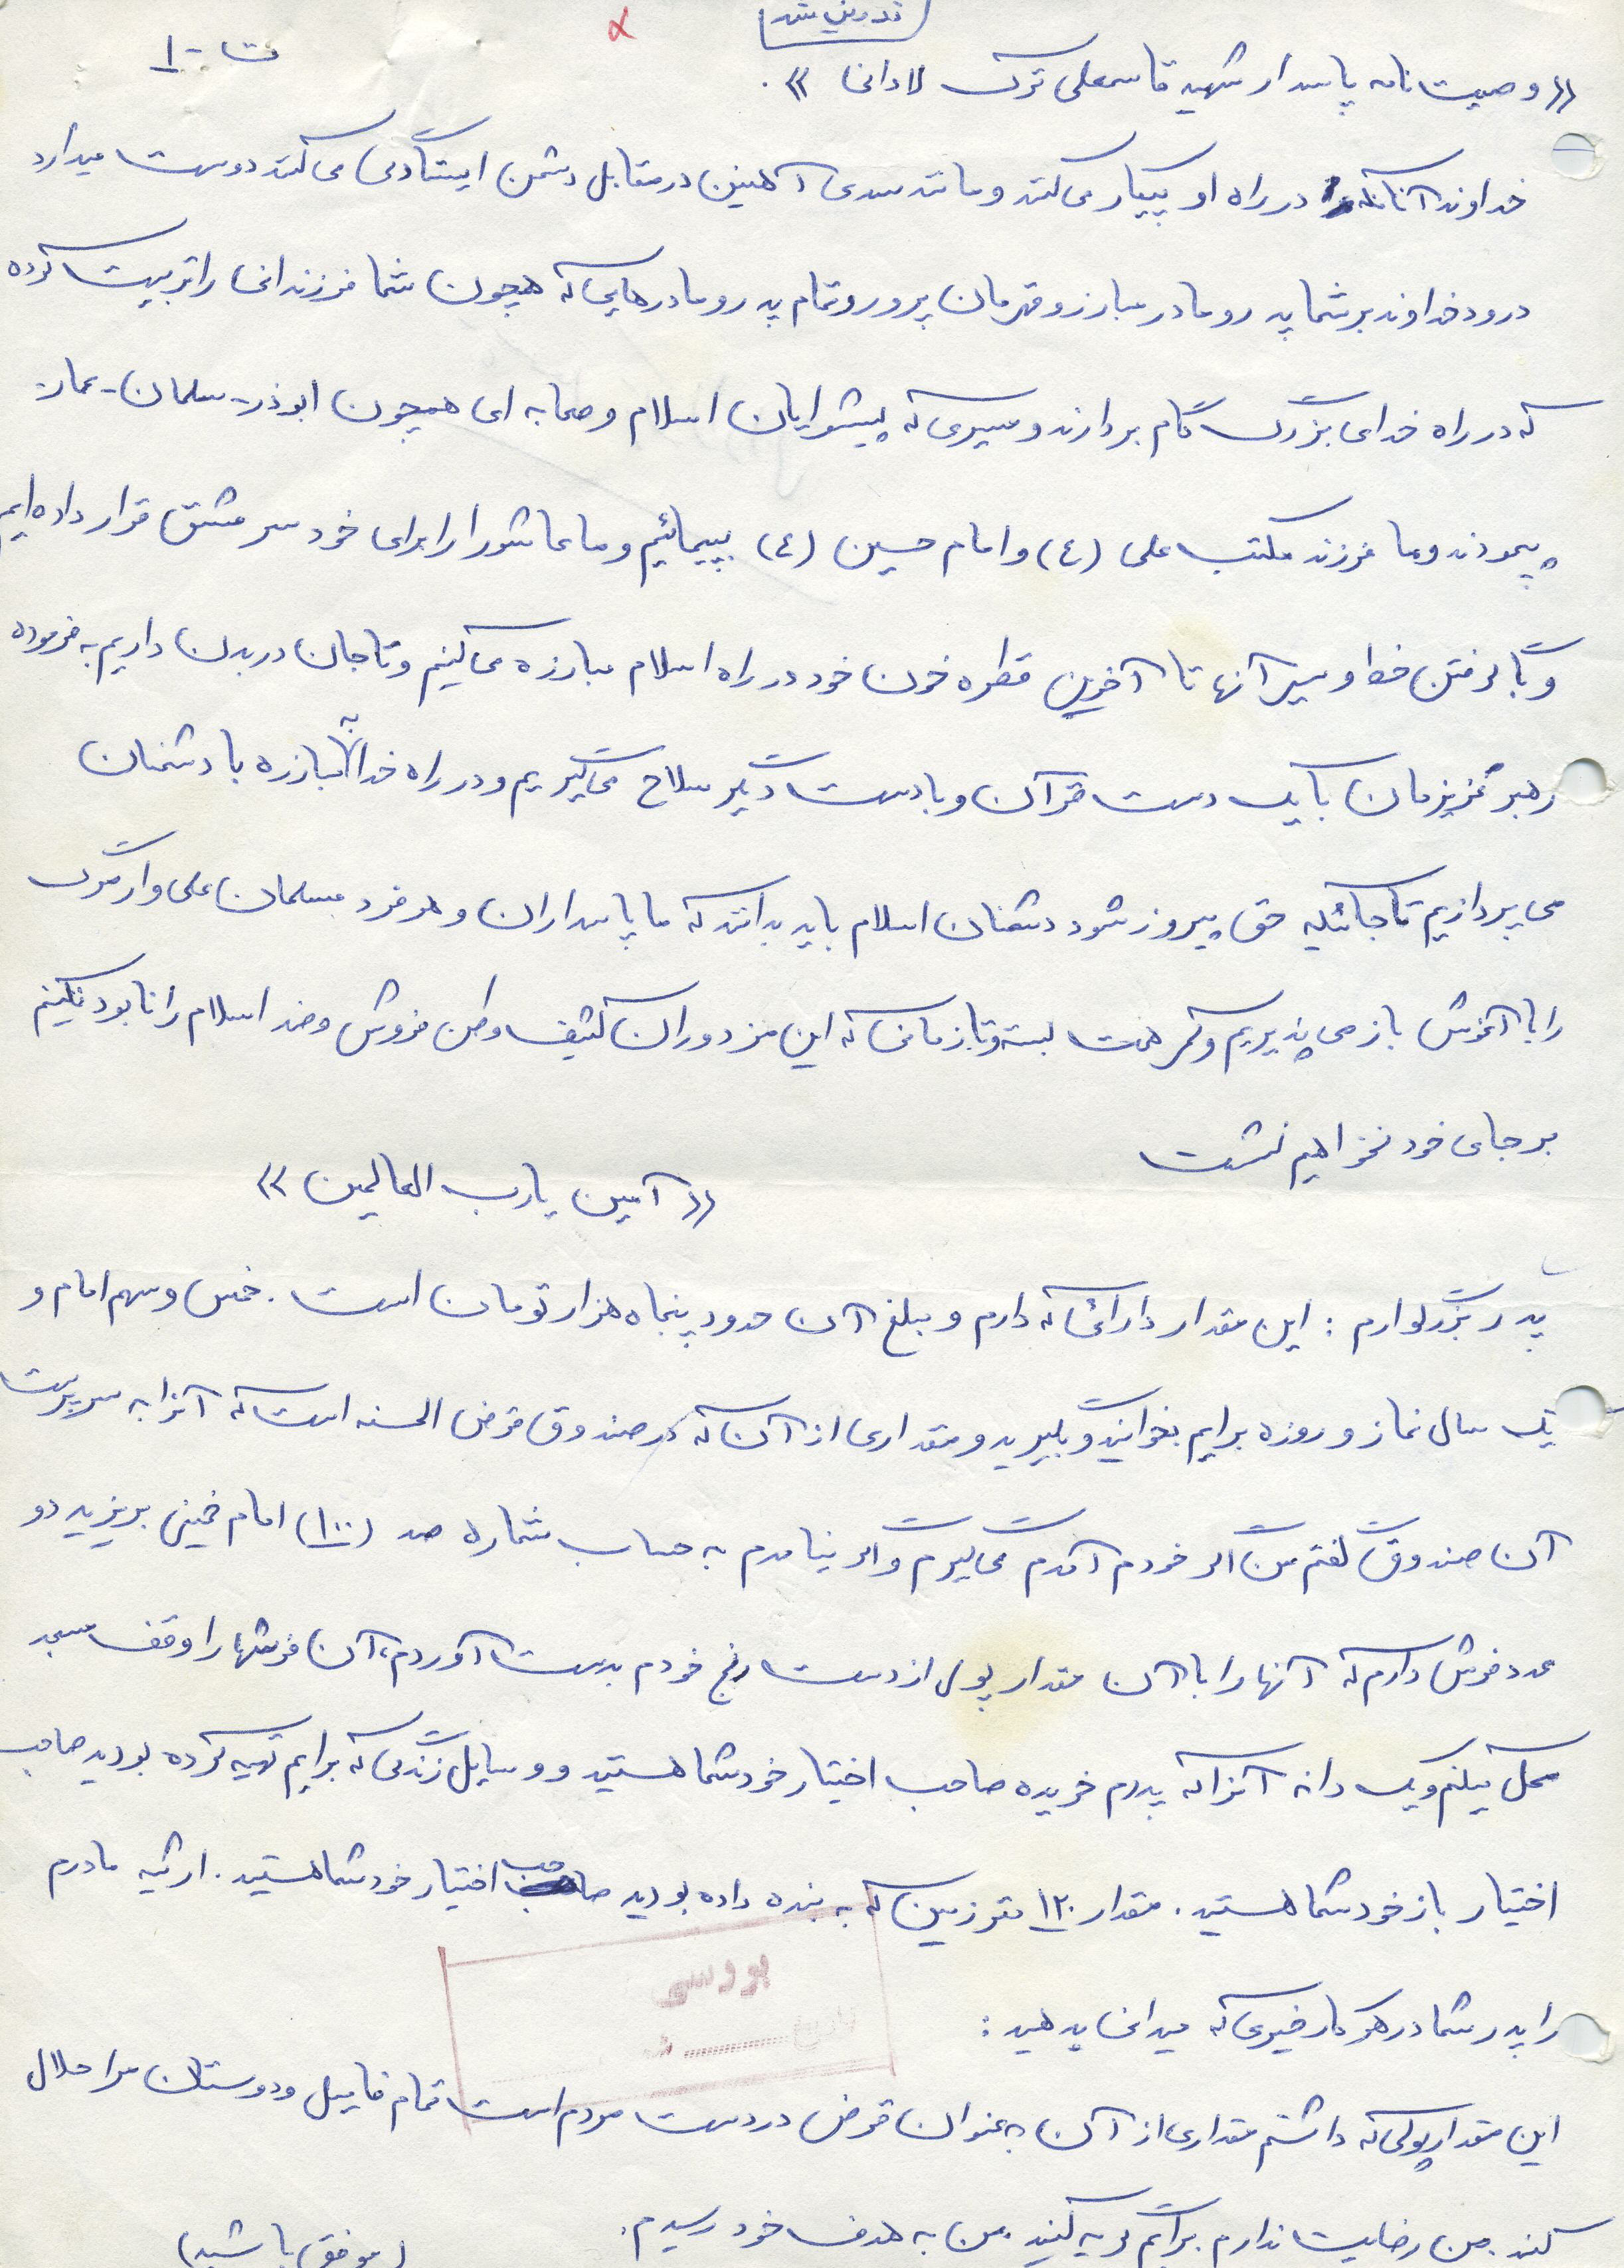 تدوین شد
ت - ۱
«وصیت نامه پاسدار شهید قاسمعلی ترک لادانی».
خداوند آنانکه در راه او پیکار می کنند و مانند سدی آهنین در مقابل دشمن ایستادگی می کنند دوست میدارد
درود خداوند بر شما پدر و مادر مبارز و قهرمان پرور و تمام پدر و مادرهایی که همچون شما فرزندانی را تربیت کرده
که در راه خدای بزرگ گام بردارند و مسیری که پیشوایان اسلام و صحابه ای همچون ابوذر - سلمان - عمار -
پیمودند و ما فرزند مکتب علی (ع) و امام حسین (ع) بپیمائیم و ما عاشورا را برای خود سرمشق قرار داده ایم
و با گرفتن خط و سیر آنها تا آخرین قطره خون خود در راه اسلام مبارزه می کنیم و تا جان در بدن داریم به فرموده
رهبر عزیزمان با یک دست قرآن و با دست دیگر سلاح می گیریم و در راه خدا به مبارزه با دشمنان
می پردازیم تا جائیکه حق پیروز شود دشمنان اسلام باید بدانند که ما پاسداران و هر فرد مسلمان علی وار مرگ
را با آغوش باز می پذیریم و کمر همت بسته و تا زمانی که این مزدوران کثیف وطن فروش و ضد اسلام را نابود نکنیم
بر جای خود نخواهیم نشست
«آمین یا رب العالمین»
پدر بزرگوارم : این مقدار دارائی که دارم و مبلغ آن حدود پنجاه هزار تومان است . خمس و سهم امام و
یک سال نماز و روزه برایم بخوانید و بگیرید و مقداری از آن که در صندوق قرض الحسنه است که آنرا به سرپرست
آن صندوق گفتم من اگر خودم آمدم می گیرم و اگر نیامدم به حساب شماره صد (۱۰۰) امام خمینی بریزید دو
عدد فرش دارم که آنها را با آن مقدار پول از دست رنج خودم بدست آوردم، آن فرشها را وقف مسجد
محل میکنم و یک دانه آنرا که پدرم خریده صاحب اختیار خود شما هستید و وسایل زندگی که برایم تهیه کرده بودید صاحب
اختیار باز خود شما هستید . مقدار ۱۲۰ متر زمین که به بنده داده بودید صاحب اختیار خود شما هستید . ارثیه مادرم
را پدر شما در هر کار خیری که میدانی بدهید :
بررسی
این مقدار پولی که داشتم مقداری از آن به عنوان قرض در دست مردم است تمام فامیل و دوستان مرا حلال
کنند . من رضایت ندارم برایم گریه کنید . من به هدف خود رسیدم .
(موفق باشید)